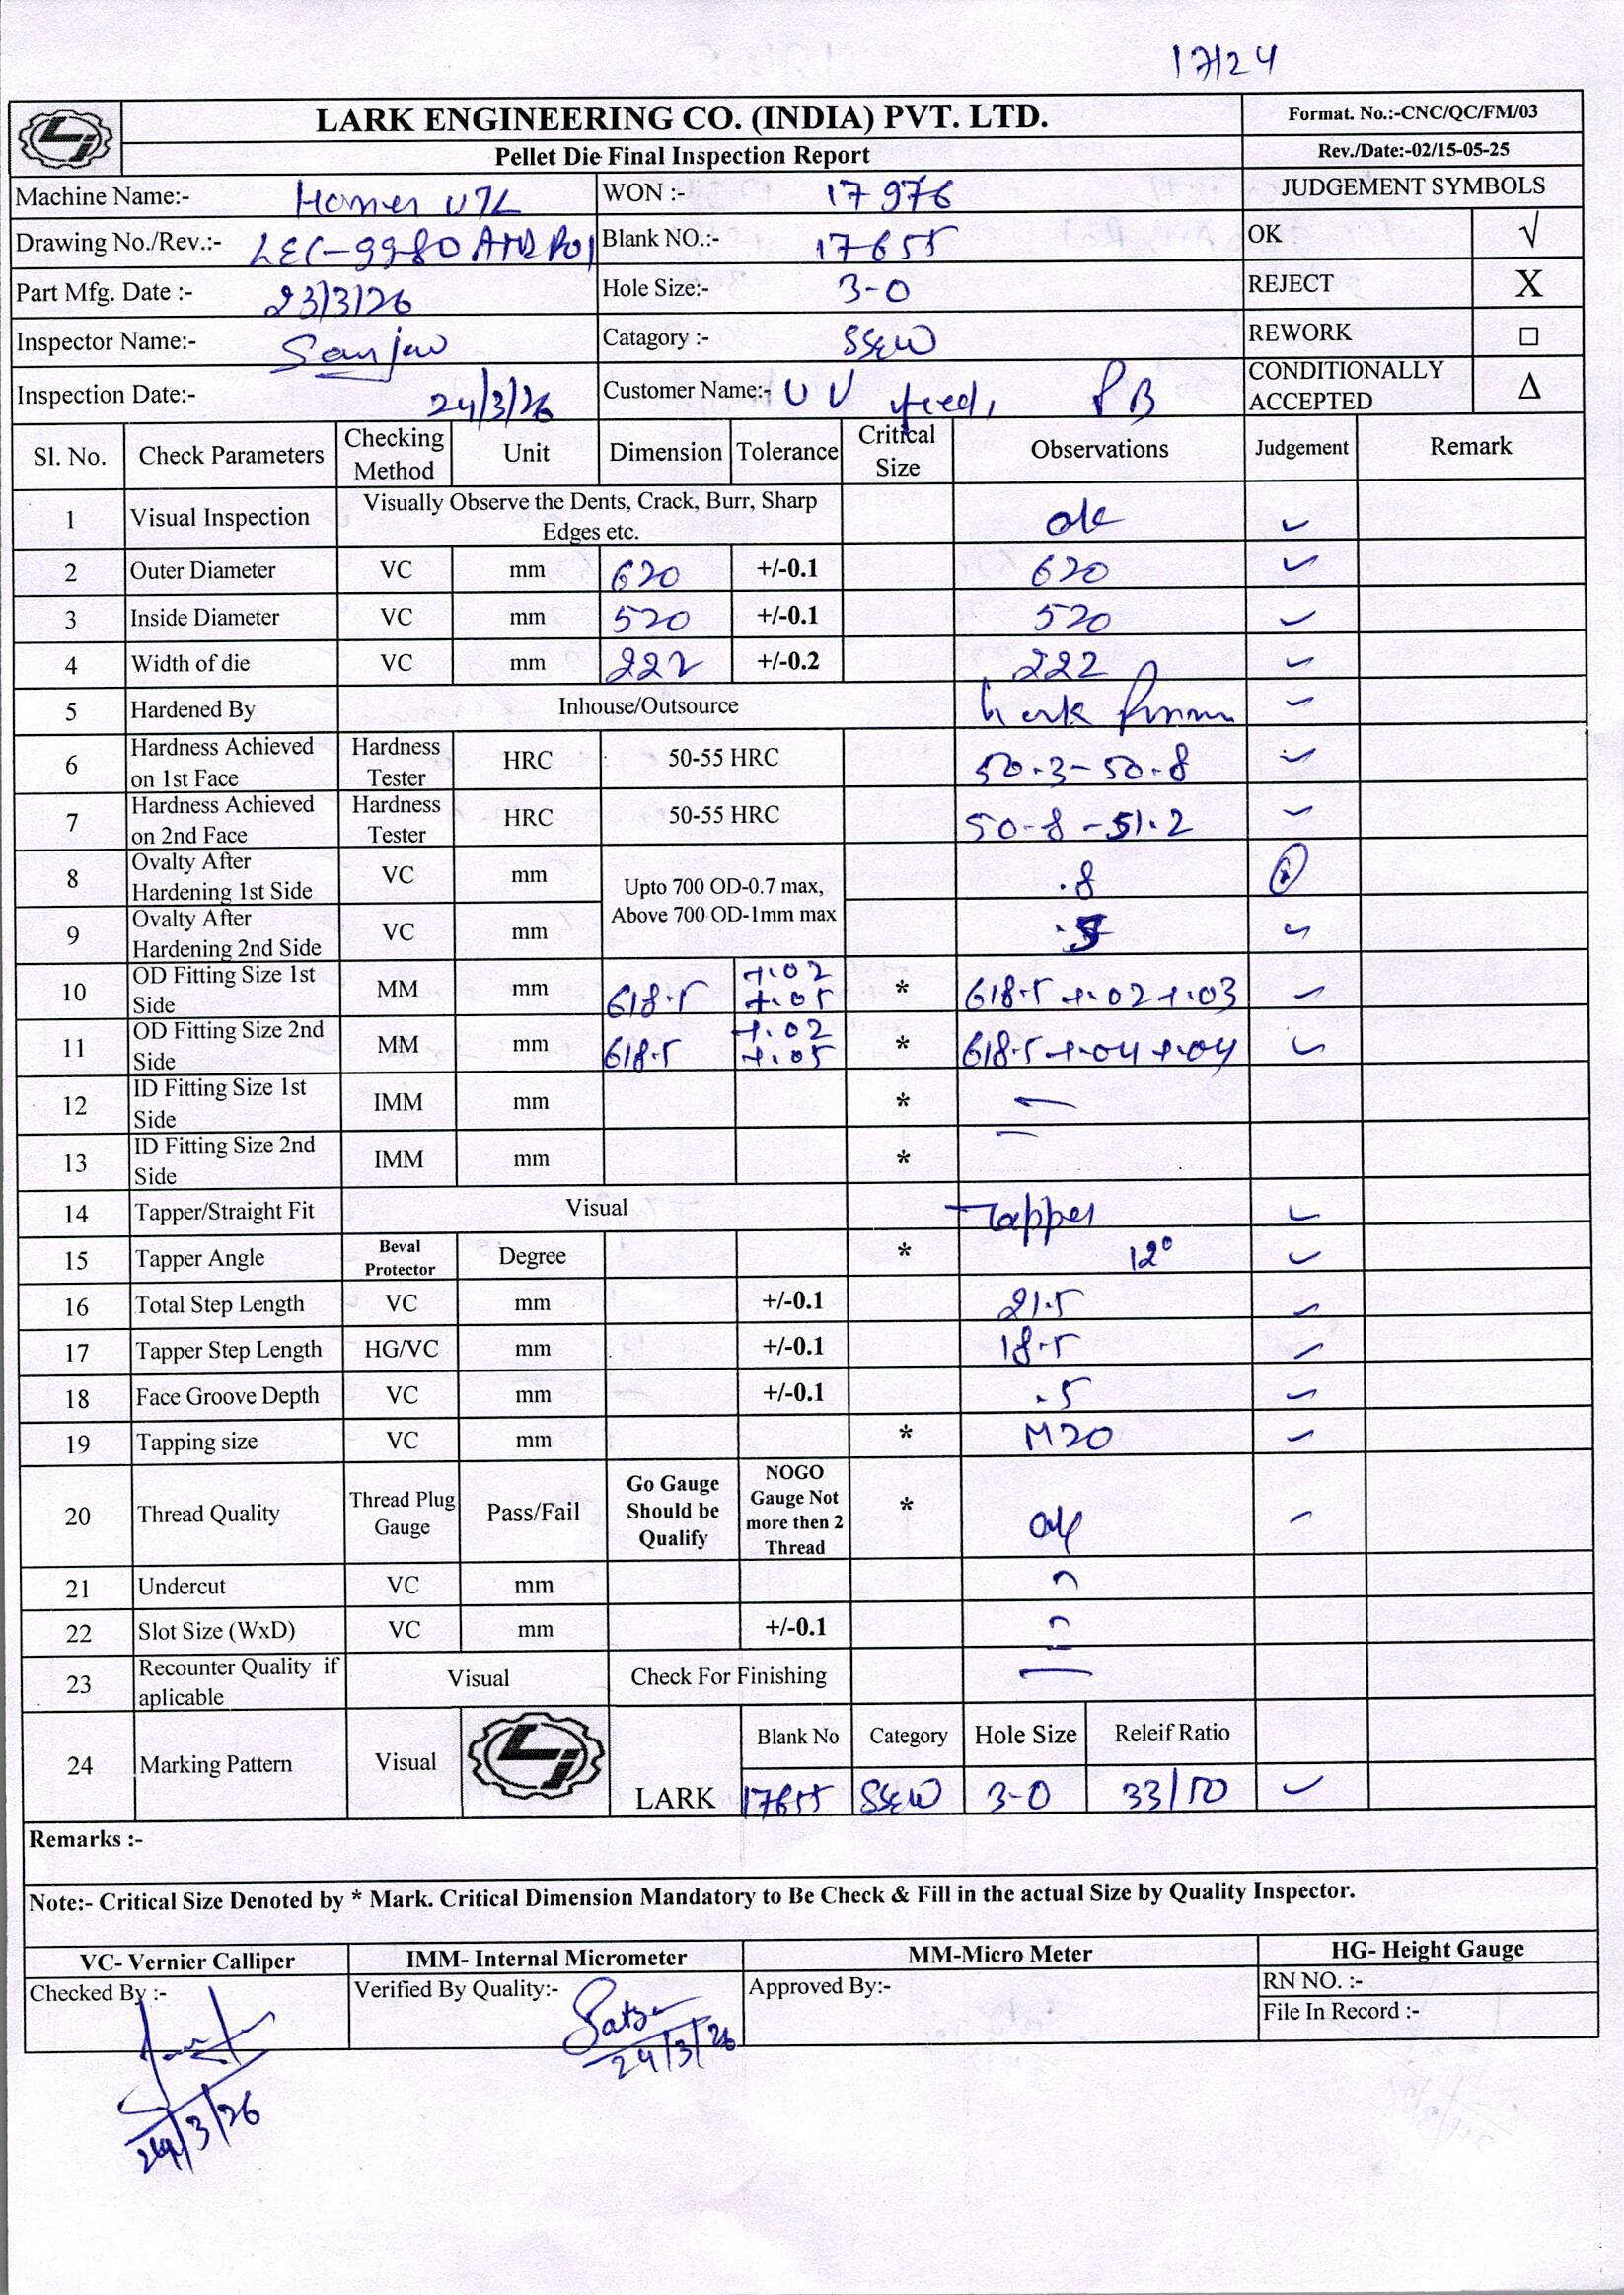 17124
LARK ENGINEERING CO. (INDIA) PVT. LTD.
Format. No.:-CNC/QC/FM/03
Pellet Die Final Inspection Report
Rev./Date:-02/15-05-25
Machine Name:- WON :- 17976 JUDGEMENT SYMBOLS
Drawing No./Rev.:- LEC-9980 Blank NO.:- 17655 OK √
Part Mfg. Date :- 23/3/26 Hole Size:- 3-0 REJECT X
Inspector Name:- Sanjeev Catagory :- REWORK □
Inspection Date:- 24/3/26 Customer Name:- UV feed, PB CONDITIONALLY ACCEPTED Δ
Sl. No. Check Parameters Checking Method Unit Dimension Tolerance Critical Size Observations Judgement Remark
1 Visual Inspection Visually Observe the Dents, Crack, Burr, Sharp Edges etc. ok ✓
2 Outer Diameter VC mm 620 +/-0.1 620 ✓
3 Inside Diameter VC mm 520 +/-0.1 520 ✓
4 Width of die VC mm 222 +/-0.2 222 ✓
5 Hardened By Inhouse/Outsource ✓
6 Hardness Achieved on 1st Face Hardness Tester HRC 50-55 HRC 50.3-50.8 ✓
7 Hardness Achieved on 2nd Face Hardness Tester HRC 50-55 HRC 50-8-51.2 ✓
8 Ovalty After Hardening 1st Side VC mm Upto 700 OD-0.7 max, Above 700 OD-1mm max .8
9 Ovalty After Hardening 2nd Side VC mm ✓
10 OD Fitting Size 1st Side MM mm 618.5 +.02 +.05 * 618.5 +.02 +.03 ✓
11 OD Fitting Size 2nd Side MM mm 618.5 +.02 +.05 * 618.5 +.04 +.04 ✓
12 ID Fitting Size 1st Side IMM mm * —
13 ID Fitting Size 2nd Side IMM mm * —
14 Tapper/Straight Fit Visual Tapper ✓
15 Tapper Angle Beval Protector Degree * 12° ✓
16 Total Step Length VC mm +/-0.1 21.5 ✓
17 Tapper Step Length HG/VC mm +/-0.1 18.5 ✓
18 Face Groove Depth VC mm +/-0.1 .5 ✓
19 Tapping size VC mm * M20 ✓
20 Thread Quality Thread Plug Gauge Pass/Fail Go Gauge Should be Qualify NOGO Gauge Not more then 2 Thread * ok ✓
21 Undercut VC mm
22 Slot Size (WxD) VC mm +/-0.1
23 Recounter Quality if aplicable Visual Check For Finishing —
24 Marking Pattern Visual LARK Blank No Category Hole Size Releif Ratio
17655 3-0 33/50 ✓
Remarks :-
Note:- Critical Size Denoted by * Mark. Critical Dimension Mandatory to Be Check & Fill in the actual Size by Quality Inspector.
VC- Vernier Calliper IMM- Internal Micrometer MM-Micro Meter HG- Height Gauge
Checked By :- Verified By Quality:- Approved By:- RN NO. :-
File In Record :-
24/3/26
24/3/26